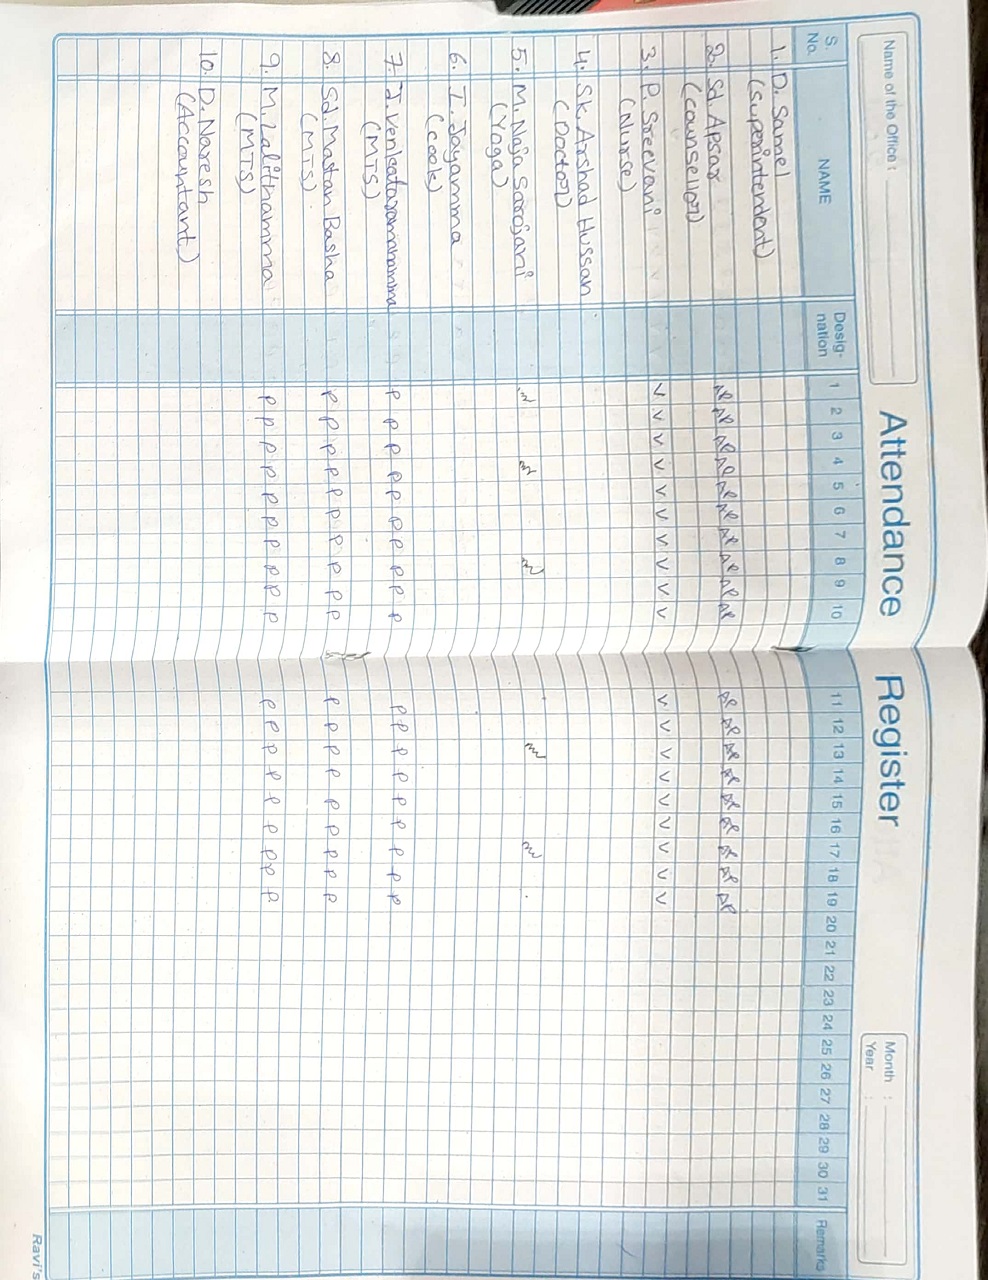 Attendance Register
Name of the Office :
Month :
Year :
S. No. NAME Desig- nation 1 2 3 4 5 6 7 8 9 10 11 12 13 14 15 16 17 18 19 20 21 22 23 24 25 26 27 28 29 30 31 Remarks
1. D. Samel
(Superintendent)
2. Sd. Apsar AP AP AP AP AP AP AP AP AP AP AP AP AP AP AP AP AP AP AP
(Counsellor)
3. P. Sreevani V V V V V V V V V V V V V V V V V V V
(Nurse)
4. Sk. Arshad Hussan
(Doctor)
5. M. Naja Sarojani
(Yoga)
6. I. Jayamma
(Cook)
7. I. Venkataramanamma P P P P P P P P P P P P P P P P P P P
(MTS)
8. Sd. Mastan Basha P P P P P P P P P P P P P P P P P P P
(MTS)
9. M. Lalithamma P P P P P P P P P P P P P P P P P P P
(MTS)
10. D. Naresh
(Accountant)
Ravi's